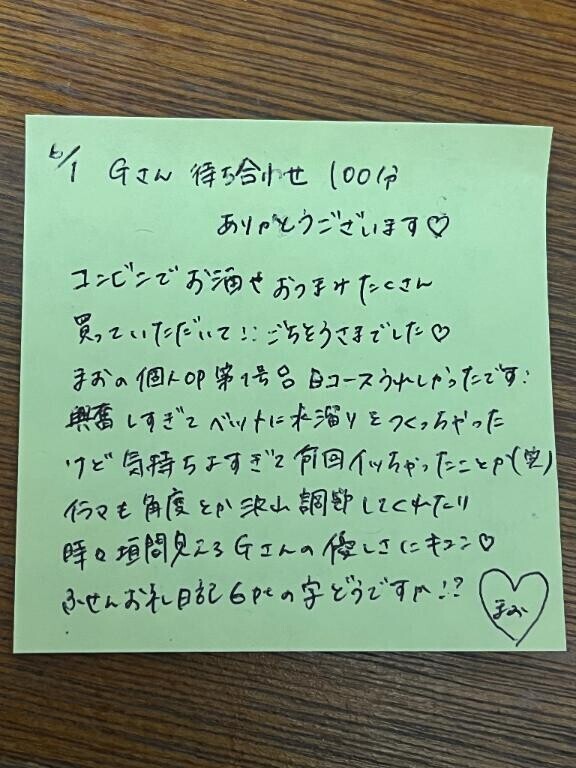 6/1 Gさん 待ち合わせ 100分
ありがとうございます♡
コンビニでお酒やおつまみたくさん
買っていただいて!! ごちそうさまでした♡
まおの個人OP第1号 Bコースうれしかったです!
興奮しすぎてベットに水溜りをつくっちゃった
けど気持ちよすぎて何回イッちゃったことか(笑)
イラマも角度とか沢山調節してくれたり
時々垣間見えるGさんの優しさにキュン♡
ふせんお礼日記6ptの字どうですか!?
まお